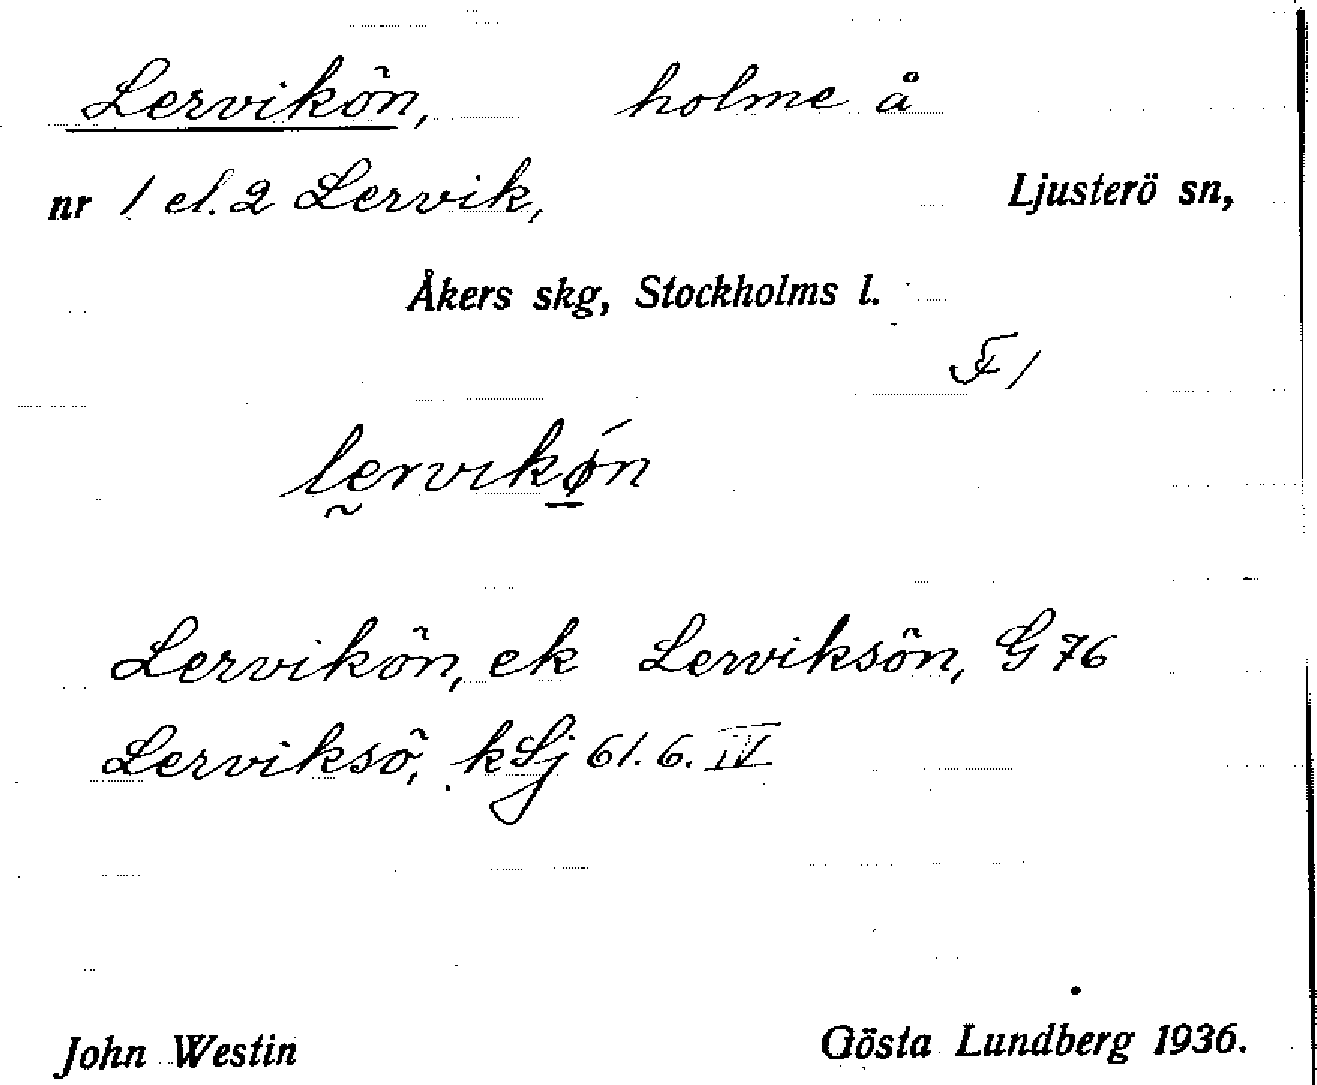 Lervikön, holme å
nr 1 el. 2 Lervik, Ljusterö sn,
Åkers skg, Stockholms l.
F 1
lervikøn
Lervikön, ek Lerviksön, G 76
Lerviksö, kLj 61. 6. IV
John Westin Gösta Lundberg 1936.